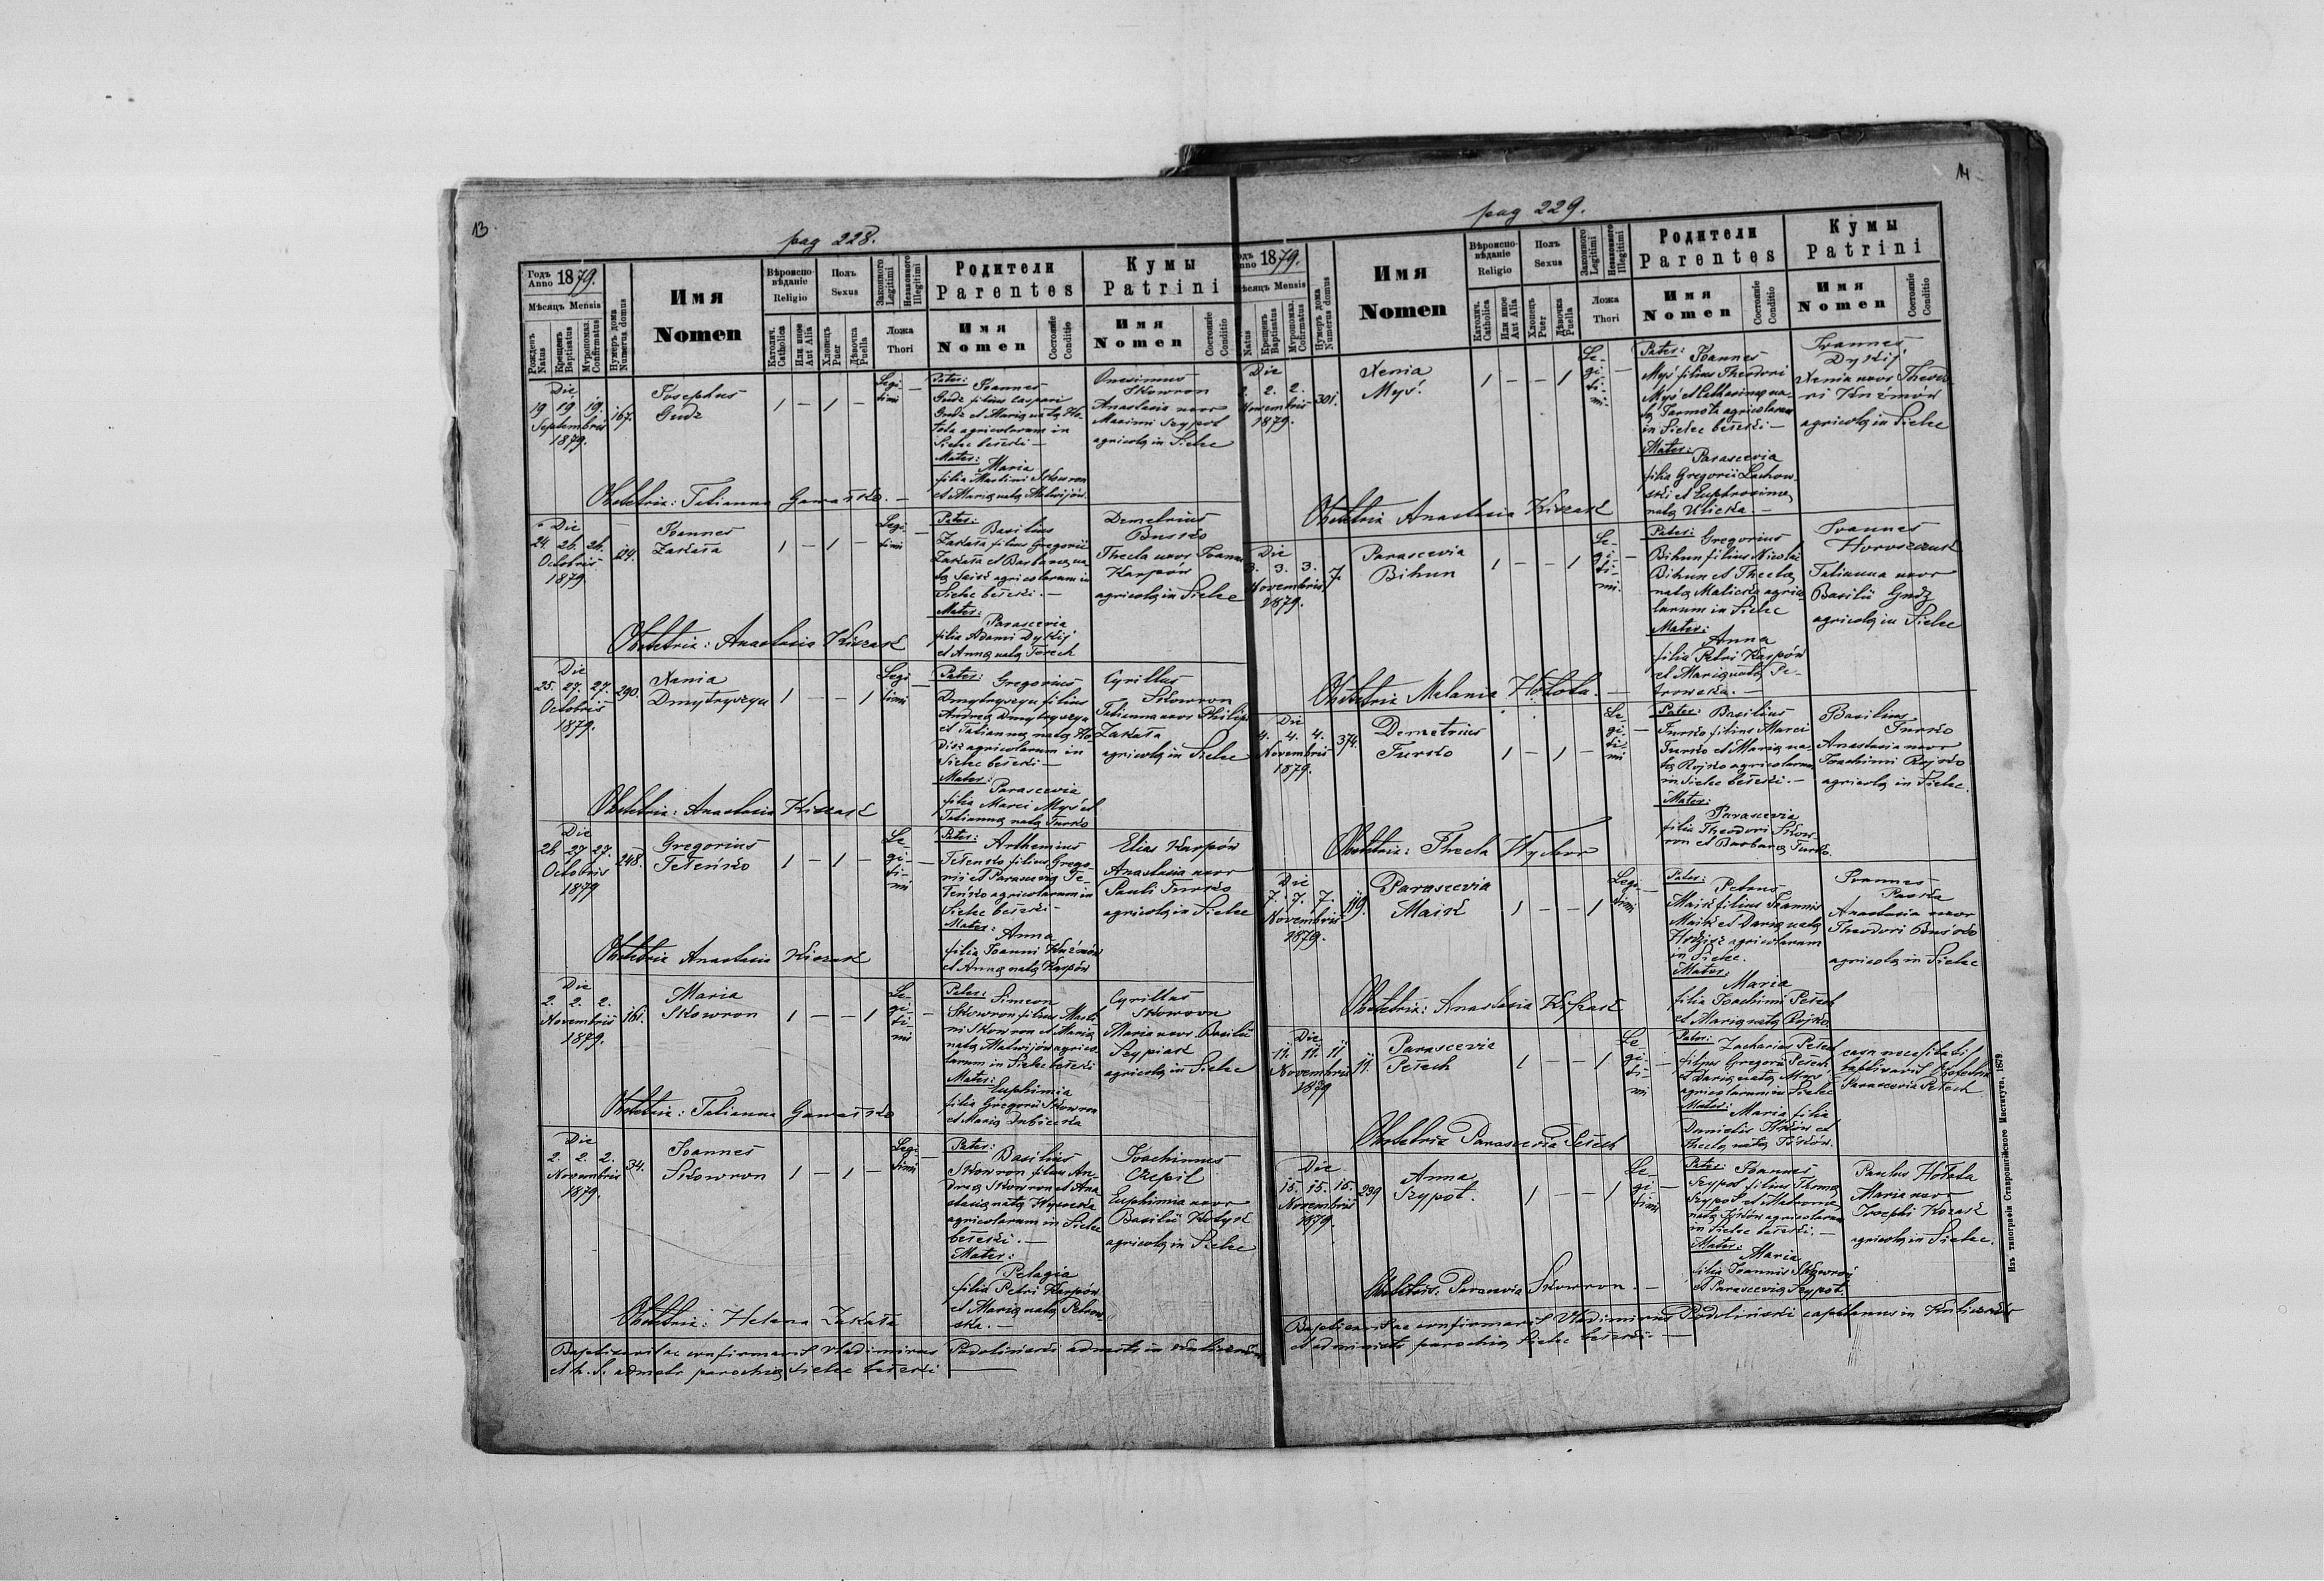 13
pag 228.
Годъ Anno 1879.
Мѣсяцъ Mensis
Рожденъ Natus
Крещенъ Baptisatus
Мѵропомаз. Confirmatus
Нумеръ дома Numerus domus
Имя
Nomen
Вѣроисповѣданіе
Religio
Католич. Catholica
Или иное Aut Alia
Полъ
Sexus
Хлопецъ Puer
Дѣвочка Puella
Законного Legitimi
Незаконного Illegitimi
Ложа
Thori
Родители
Parentes
Имя
Nomen
Состояніе Conditio
Кумы
Patrini
Имя
Nomen
Состояніе Conditio
Die
19. 19. 19.
Septembris
1879.
167.
Josephus
Gudz
1 – 1 –
Legi-
timi
–
Pater: Joannes
Gudz filius Caspari
Gudz et Maria nata Ho-
tota agricolarum in
Sielec bełzki –
Mater: Maria
filia Martini Skowron
et Maria nata Matwijów.
Onesimus
Skowron
Anastasia uxor
Maximi Szypot
agricola in Sielec
Obstetrix: Tatianna
Die
24. 26. 26.
Octobris
1879.
24.
Joannes
Zakała
1 – 1 –
Legi-
timi
Pater: Basilius
Zakała filius Gregorii
Zakała et Barbara na-
ta agricolarum in
Sielec bełzki. –
Mater: Parascevia
filia Adami Dykij
et Anna nata Torech
Demetrius
Busko
Thecla uxor Joannis
Karpów
agricola in Sielec
Obstetrix: Anastasia Kiczak
Die
25. 27. 27.
Octobris
1879.
290.
Xenia
Dmytryszyn
1 – – 1
Legi-
timi
Pater: Gregorius
Dmytryszyn filius
Andrea Dmytryszyn
et Tatianna nata
agricolarum in
Sielec bełzki –
Mater: Parascevia
filia Marci Myś et
Tatianna nata Turko
Cyrillus
Skowron
Tatianna uxor Philippi
Zakała
agricola in Sielec
Obstetrix: Anastasia Kiczak
Die
26. 27. 27.
Octobris
1879
248.
Gregorius
Teleńko
1 – 1 –
Le-
gi-
ti-
mi
Pater: Arthemius
Teleńko filius Grego-
rii et Parascevia Te-
leńko agricolarum in
Sielec bełzki –
Mater: Anna
filia Joanni Kuźmów
et Anna nata Karpów
Elias Karpów
Anastasia uxor
Pauli Turko
agricola in Sielec
Obstetrix Anastasia Kiczak
Die
2. 2. 2.
Novembris
1879.
161.
Maria
Skowron
1 – – 1
Le-
gi-
ti-
mi
Pater: Simeon
Skowron filius Marti-
ni Skowron et Maria
nata Matwijów agrico-
larum in Sielec bełzki
Mater: Euphimia
filia Gregorii Skowron
et Maria
Cyrillus
Skowron
Maria uxor Basilii
Szypiak
agricola in Sielec
Obstetrix: Tatianna
Die
2. 2. 2.
Novembris
1879.
34.
Joannes
Skowron
1 – 1 –
Legi-
timi
Pater: Basilius
Skowron filius An-
drea Skowron et Ana-
stasia nata
agricolarum in Sielec
bełzki. –
Mater:
Pelagia
filia Petri Karpów
et Maria nata Petrow-
ska. –
Joachimus
Czepil
Euphimia uxor
Basilii Kotyk
agricola in Sielec
Obstetrix: Helena Zakała
Baptizavit ac confirmavit Vladimirus Podoliński
parochia Sielec bełzki
14
pag 229.
Годъ Anno 1879.
Мѣсяцъ Mensis
Natus
Крещенъ Baptisatus
Мѵропомаз. Confirmatus
Нумеръ дома Numerus domus
Имя
Nomen
Вѣроисповѣданіе
Religio
Католич. Catholica
Или иное Aut Alia
Полъ
Sexus
Хлопецъ Puer
Дѣвочка Puella
Законного Legitimi
Незаконного Illegitimi
Ложа
Thori
Родители
Parentes
Имя
Nomen
Состояніе Conditio
Кумы
Patrini
Имя
Nomen
Состояніе Conditio
Die
2. 2. 2.
Novembris
1879.
301.
Xenia
Myś.
1 – – 1
Le-
gi-
ti-
mi-
Pater: Joannes
Myś filius Theodori
Myś et Catharina na-
ta Jarmoła agricolarum
in Sielec bełzki –
Mater: Parascevia
filia Gregorii Lachow-
ski et Euphrosina
nata Ulicka. –
Joannes
Dykij
Xenia uxor Theodo-
ri Kuźmów
agricola in Sielec
Obstetrix Anastasia Kiczak
Die
3. 3. 3.
Novembris
1879.
7.
Parascevia
Bihun
1 – – 1
Le-
gi-
ti-
mi.
Pater: Gregorius
Bihun filius Nicolai
Bihun et Thecla
nata Malicka agrico-
larum in Sielec
Mater: Anna
filia Petri Karpów
et Maria nata Pe-
trowska. –
Joannes
Horoszczuk
Tatianna uxor
Basilii Gudz
agricola in Sielec
Obstetrix Melania Hotota. –
Die
4. 4. 4.
Novembris
1879.
374.
Demetrius
Turko
1 – 1 –
Le-
gi-
ti-
mi
Pater: Basilius
Turko filius Marci
Turko et Maria na-
ta Rojko agricolarum
in Sielec bełzki. –
Mater:
Parascevia
filia Theodori Skow-
ron et Barbara Turko.
Basilius
Turko
Anastasia uxor
Joachimi Rojko
agricola in Sielec.
Obstetrix: Thecla Wychor
Die
7. 7. 7.
Novembris
1879.
119.
Parascevia
Maik
1 – – 1
Legi-
timi
Pater: Petrus
Maik filius Joannis
Maik et Daria nata
agricolarum
in Sielec.
Mater: Maria
filia Joachimi Pełech
et Maria nata Rojko
Joannes
Pawka
Anastasia uxor
Theodori Busko
agricola in Sielec
Obstetrix: Anastasia Kiczak
Die
11. 11. 11
Novembris
1879
11.
Parascevia
Pełech
1 – – 1
Le-
gi-
ti-
mi
Pater: Zacharias Pełech
filius Gregorii Pełech
et Daria nata Myś
agricolarum in Sielec
Mater: Maria filia
Danielis et
Thecla nata
casu necessitatis
baptizavit Obstetrix
Parascevia Pełech
Obstetrix Parascevia Pełech
Die
15. 15. 15.
Novembris
1879.
239
Anna
Szypot.
1 – – 1
Le-
gi-
timi
Pater: Joannes
Szypot filius Thoma
Szypot et Matrona
nata agricolarum
in Sielec bełzki. –
Mater: Maria
filia Joannis Skowron
et Parascevia Szypot.
Paulus Hotota
Maria uxor
Josephi Kozak
agricola in Sielec.
Obstetrix: Parascevia Skowron. –
Baptizavit ac confirmavit Vladimirus Podoliński capellanus in
et administr parochia Sielec bełzki –
Изъ типографіи Ставропигійского Института. 1879